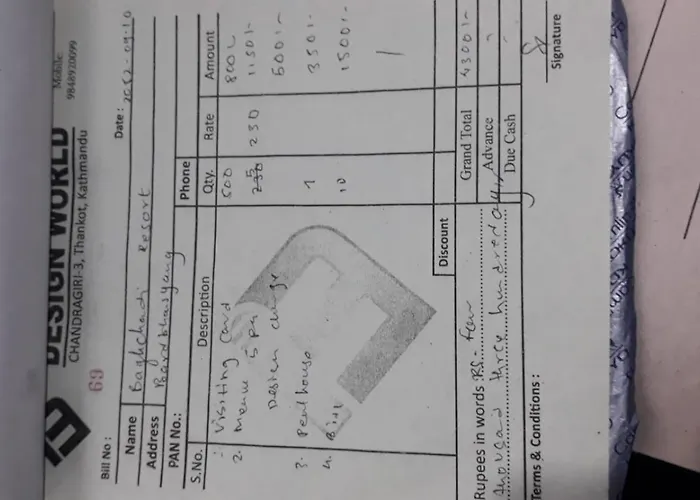 DESIGN WORLD
CHANDRAGIRI-3, Thankot, Kathmandu
Mobile:
9848920099
Bill No : 69
Date : 2062-09-10
Name Baghchadi Resort
Address
PAN No.: Phone
S.No. Description Qty. Rate Amount
1. Visiting Card 500 800/-
2. Menue 5 Ps 5 230 1150/-
Design charge 500/-
3. Penthouse 1 350/-
4. 10 1500/-
Discount Grand Total 4300/-
Advance
Due Cash
Rupees in words :Rs. Four
thousand three hundred only
Terms & Conditions :
Signature